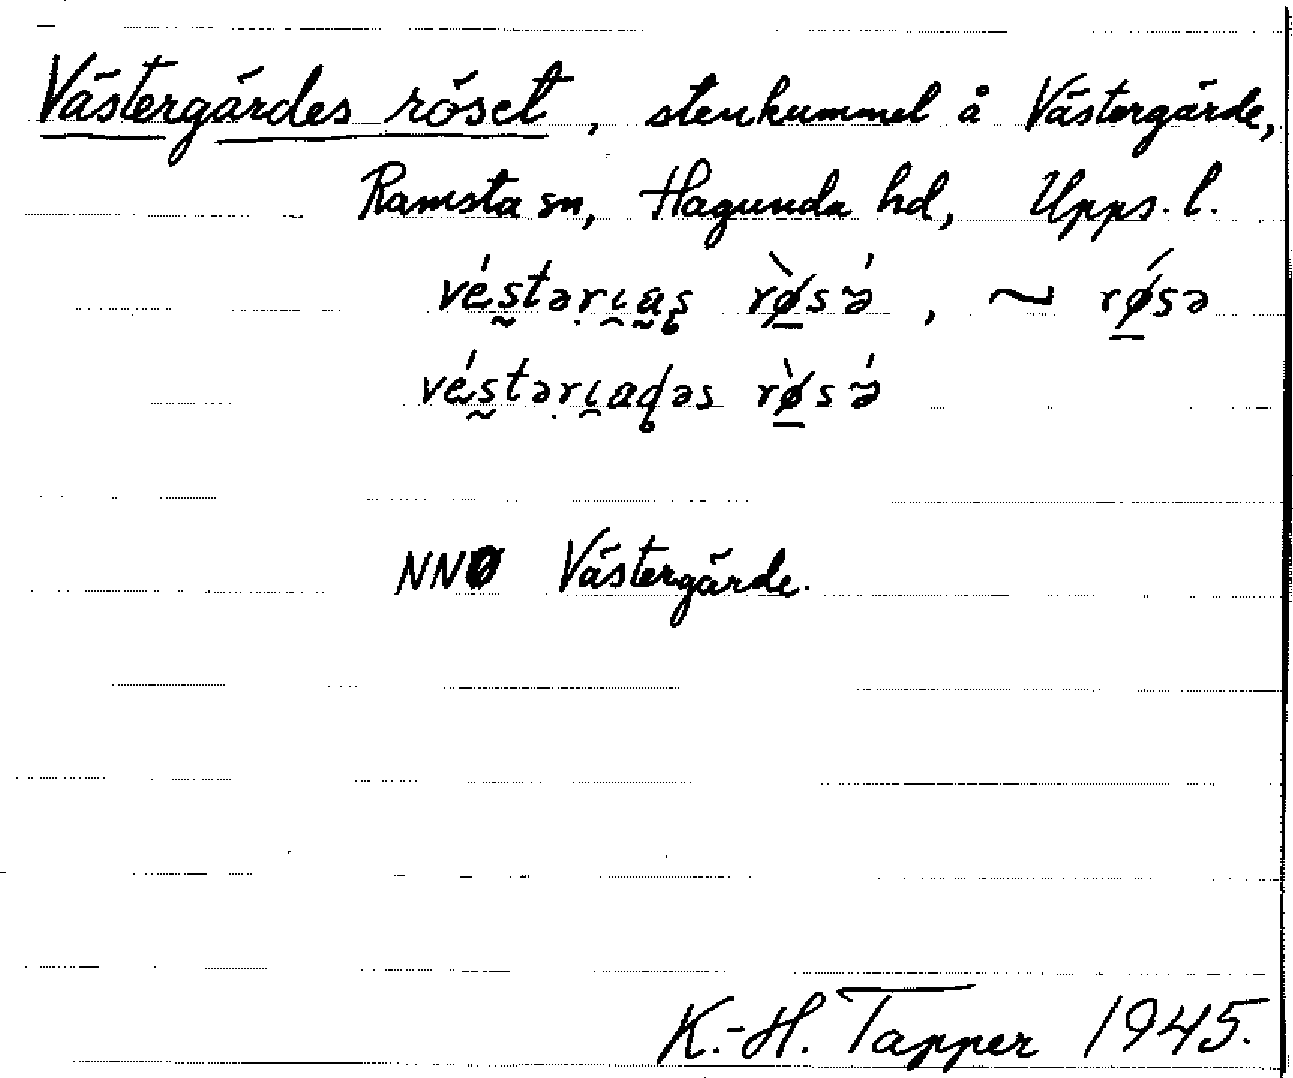 Västergärdes röset, stenkummel å Västergärde,
Ramsta sn, Hagunda hd, Upps. l.
véstərɩas rø̀sə́, ~ rǿsə
véstərɩadəs rø̀sə́
NNO Västergärde.
K.-H. Tapper 1945.